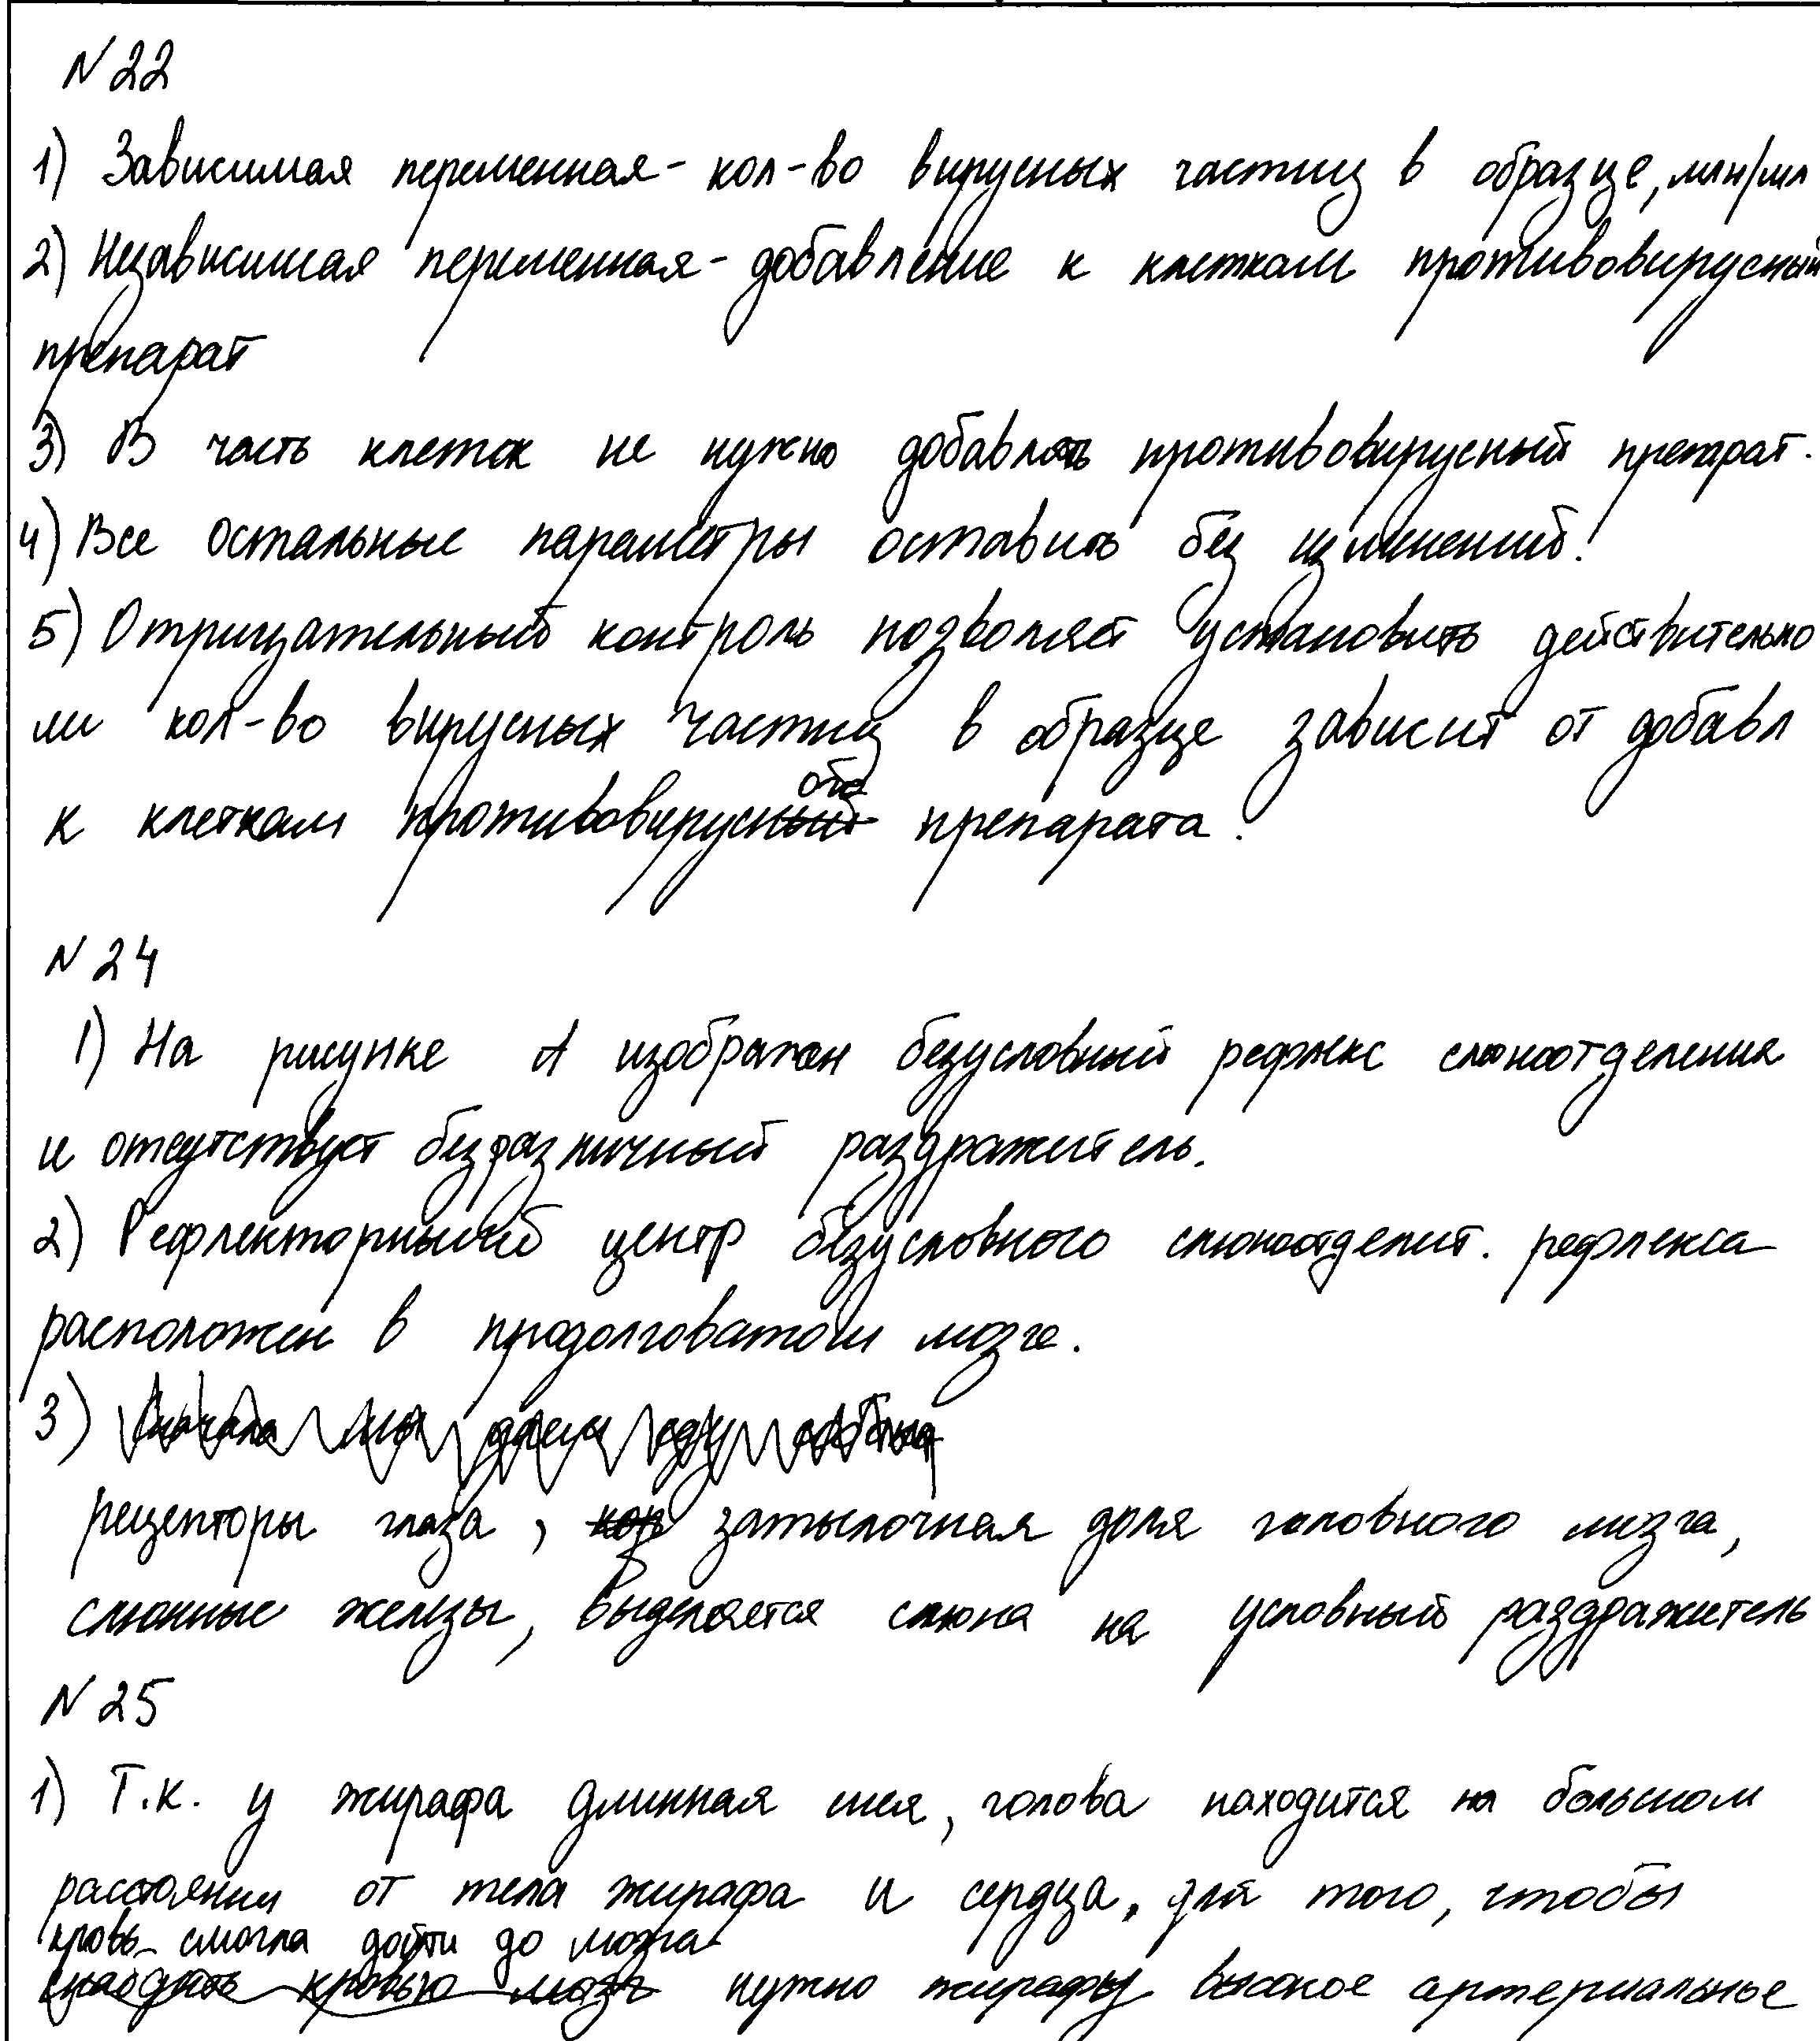 N 22
1) Зависимая переменная - кол-во вирусных частиц в образце, млн/мл
2) Независимая переменная - добавление к клеткам противовирусный
препарат
3) В часть клеток не нужно добавлять противовирусный препарат.
4) Все остальные параметры оставить без изменений.
5) Отрицательный контроль позволяет установить действительно
ли кол-во вирусных частиц в образце зависит от добавл
к клеткам противовирусного препарата.
N 24
1) На рисунке А изображен безусловный рефлекс слюноотделения
и отсутствует безразличный раздражитель.
2) Рефлекторный центр безусловного слюноотделит. рефлекса
расположен в продолговатом мозге.
3)
рецепторы глаза, затылочная доля головного мозга,
слюнные железы, выделяется слюна на условный раздражитель
N 25
1) Т.к. у жирафа длинная шея, голова находится на большом
расстоянии от тела жирафа и сердца, для того, чтобы
кровь смогла дойти до мозга
нужно жирафу высокое артериальное